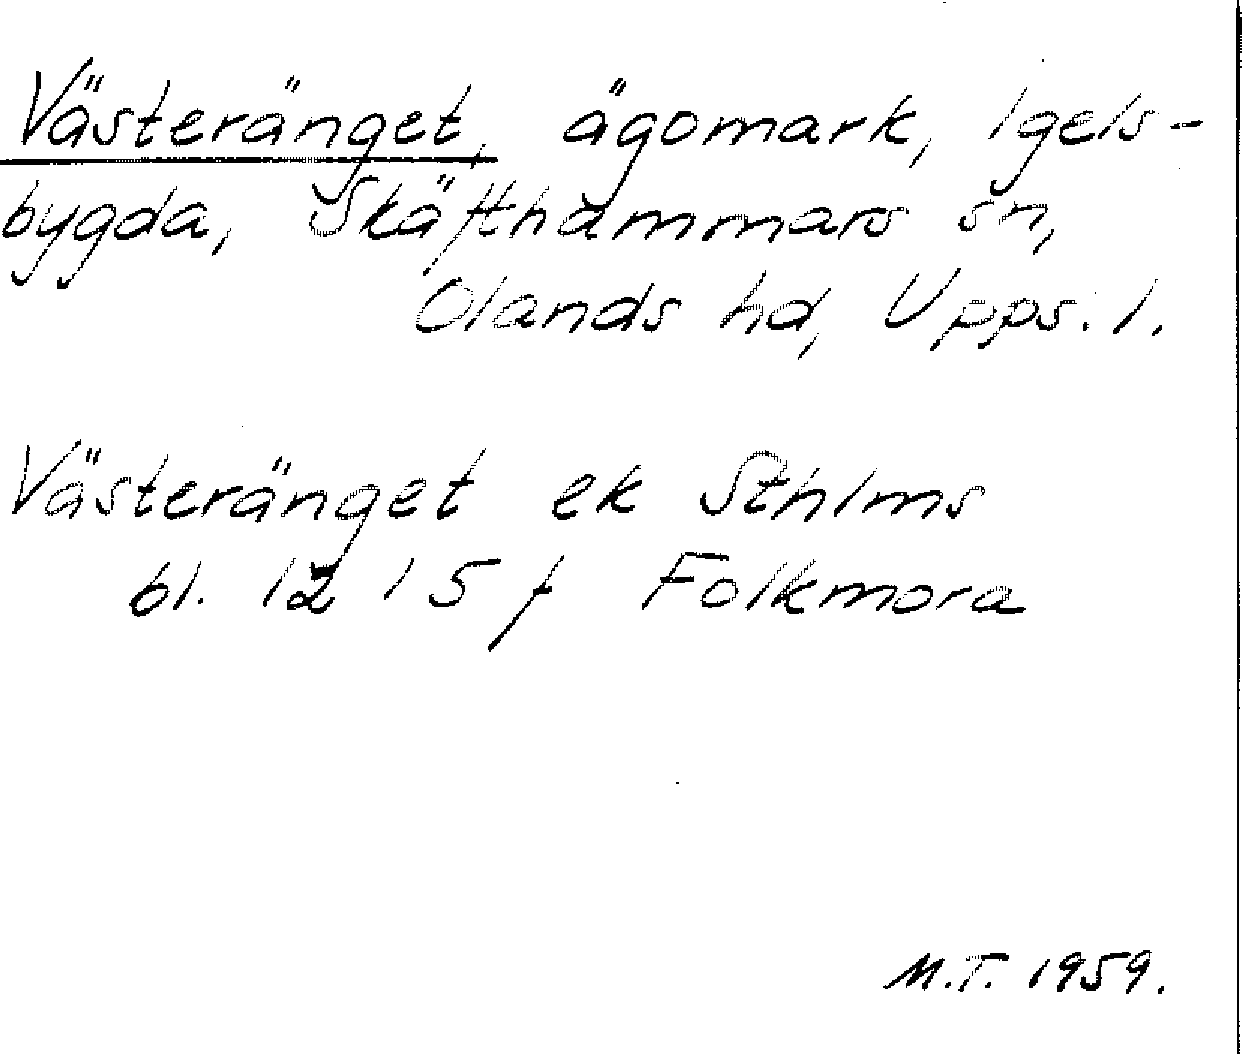 Västeränget, ägomark, Igels-
bygda, Skäfthammars sn,
Olands hd, Upps. l.
Västeränget ek Sthlms
bl. 12 i 5 f Folkmora
M.T. 1959.